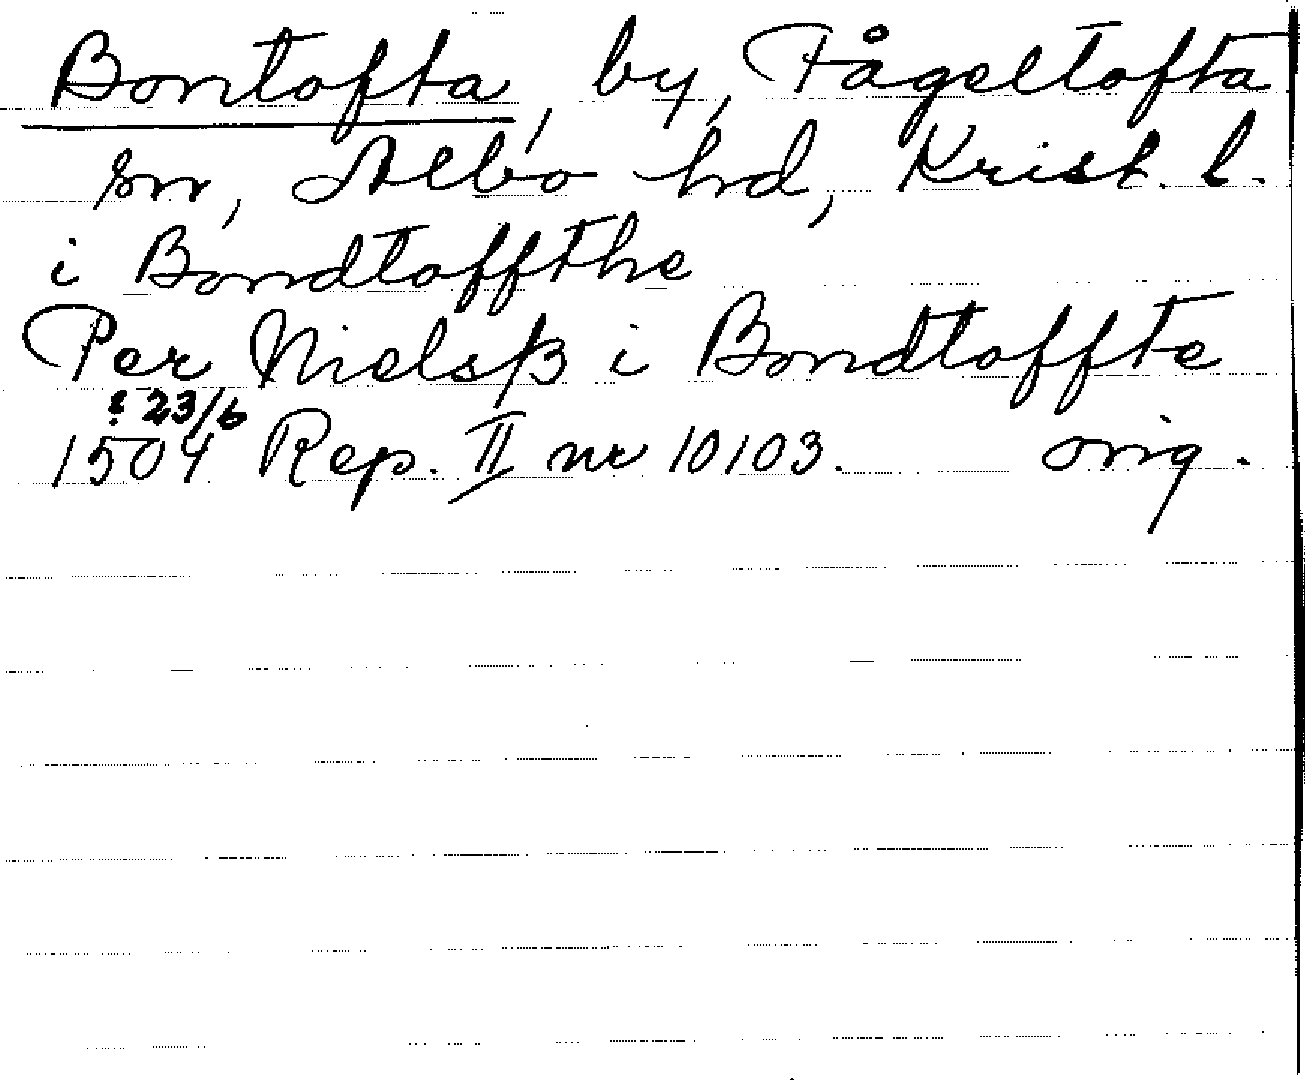 Bontofta, by, Fågeltofta
sn, Albo hd, Krist. l.
i Bondtoffthe
Per Nielsß i Bondtoffte
23/6
1504 Rep. II nr 10103. orig.